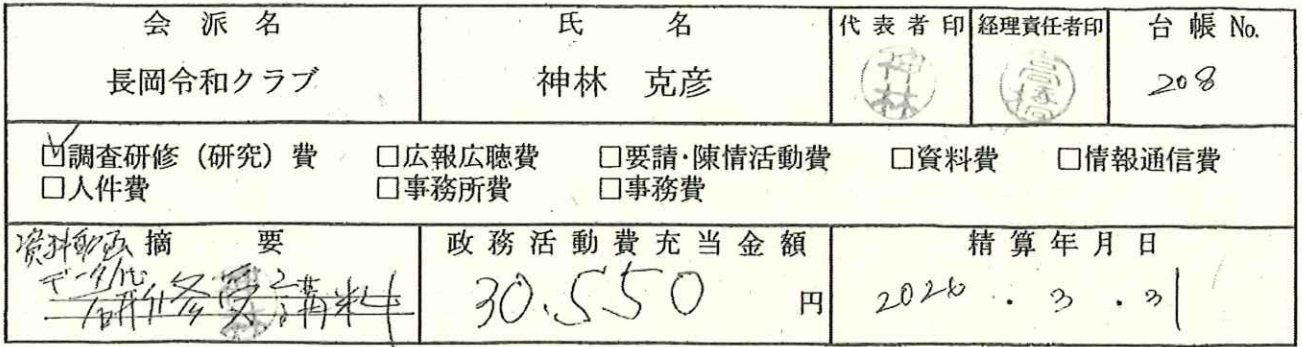 会派名 氏名 代表者印 経理責任者印 台帳No.
長岡令和クラブ 神林 克彦 神林 208
☑調査研修（研究）費 □広報広聴費 □要請・陳情活動費 □資料費 □情報通信費
□人件費 □事務所費 □事務費
摘要 政務活動費充当金額 精算年月日
データ代
研修受講料 30.550 円 2026.3.31